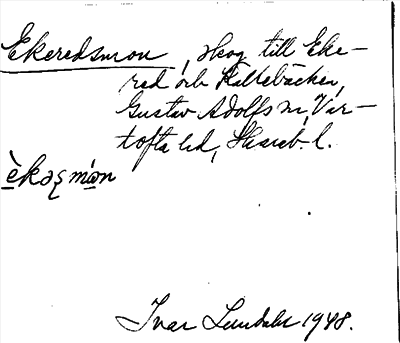 Ekeredsmon, skog till Eke-
red och Källebäcken,
Gustav Adolfs sn, Var-
tofta hd, Skarab. l.
èkəʂmȯn
Ivar Lundahl 1948.